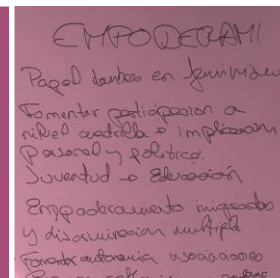 EMPODERAMI
Papel
Fomentar participacion a
nibel cuadrilla e implicacion
Personal y politica.
Juventud → Educación
Empoderamiento migradas
y discriminacion multiple
Fomentar autonomia asociaciones